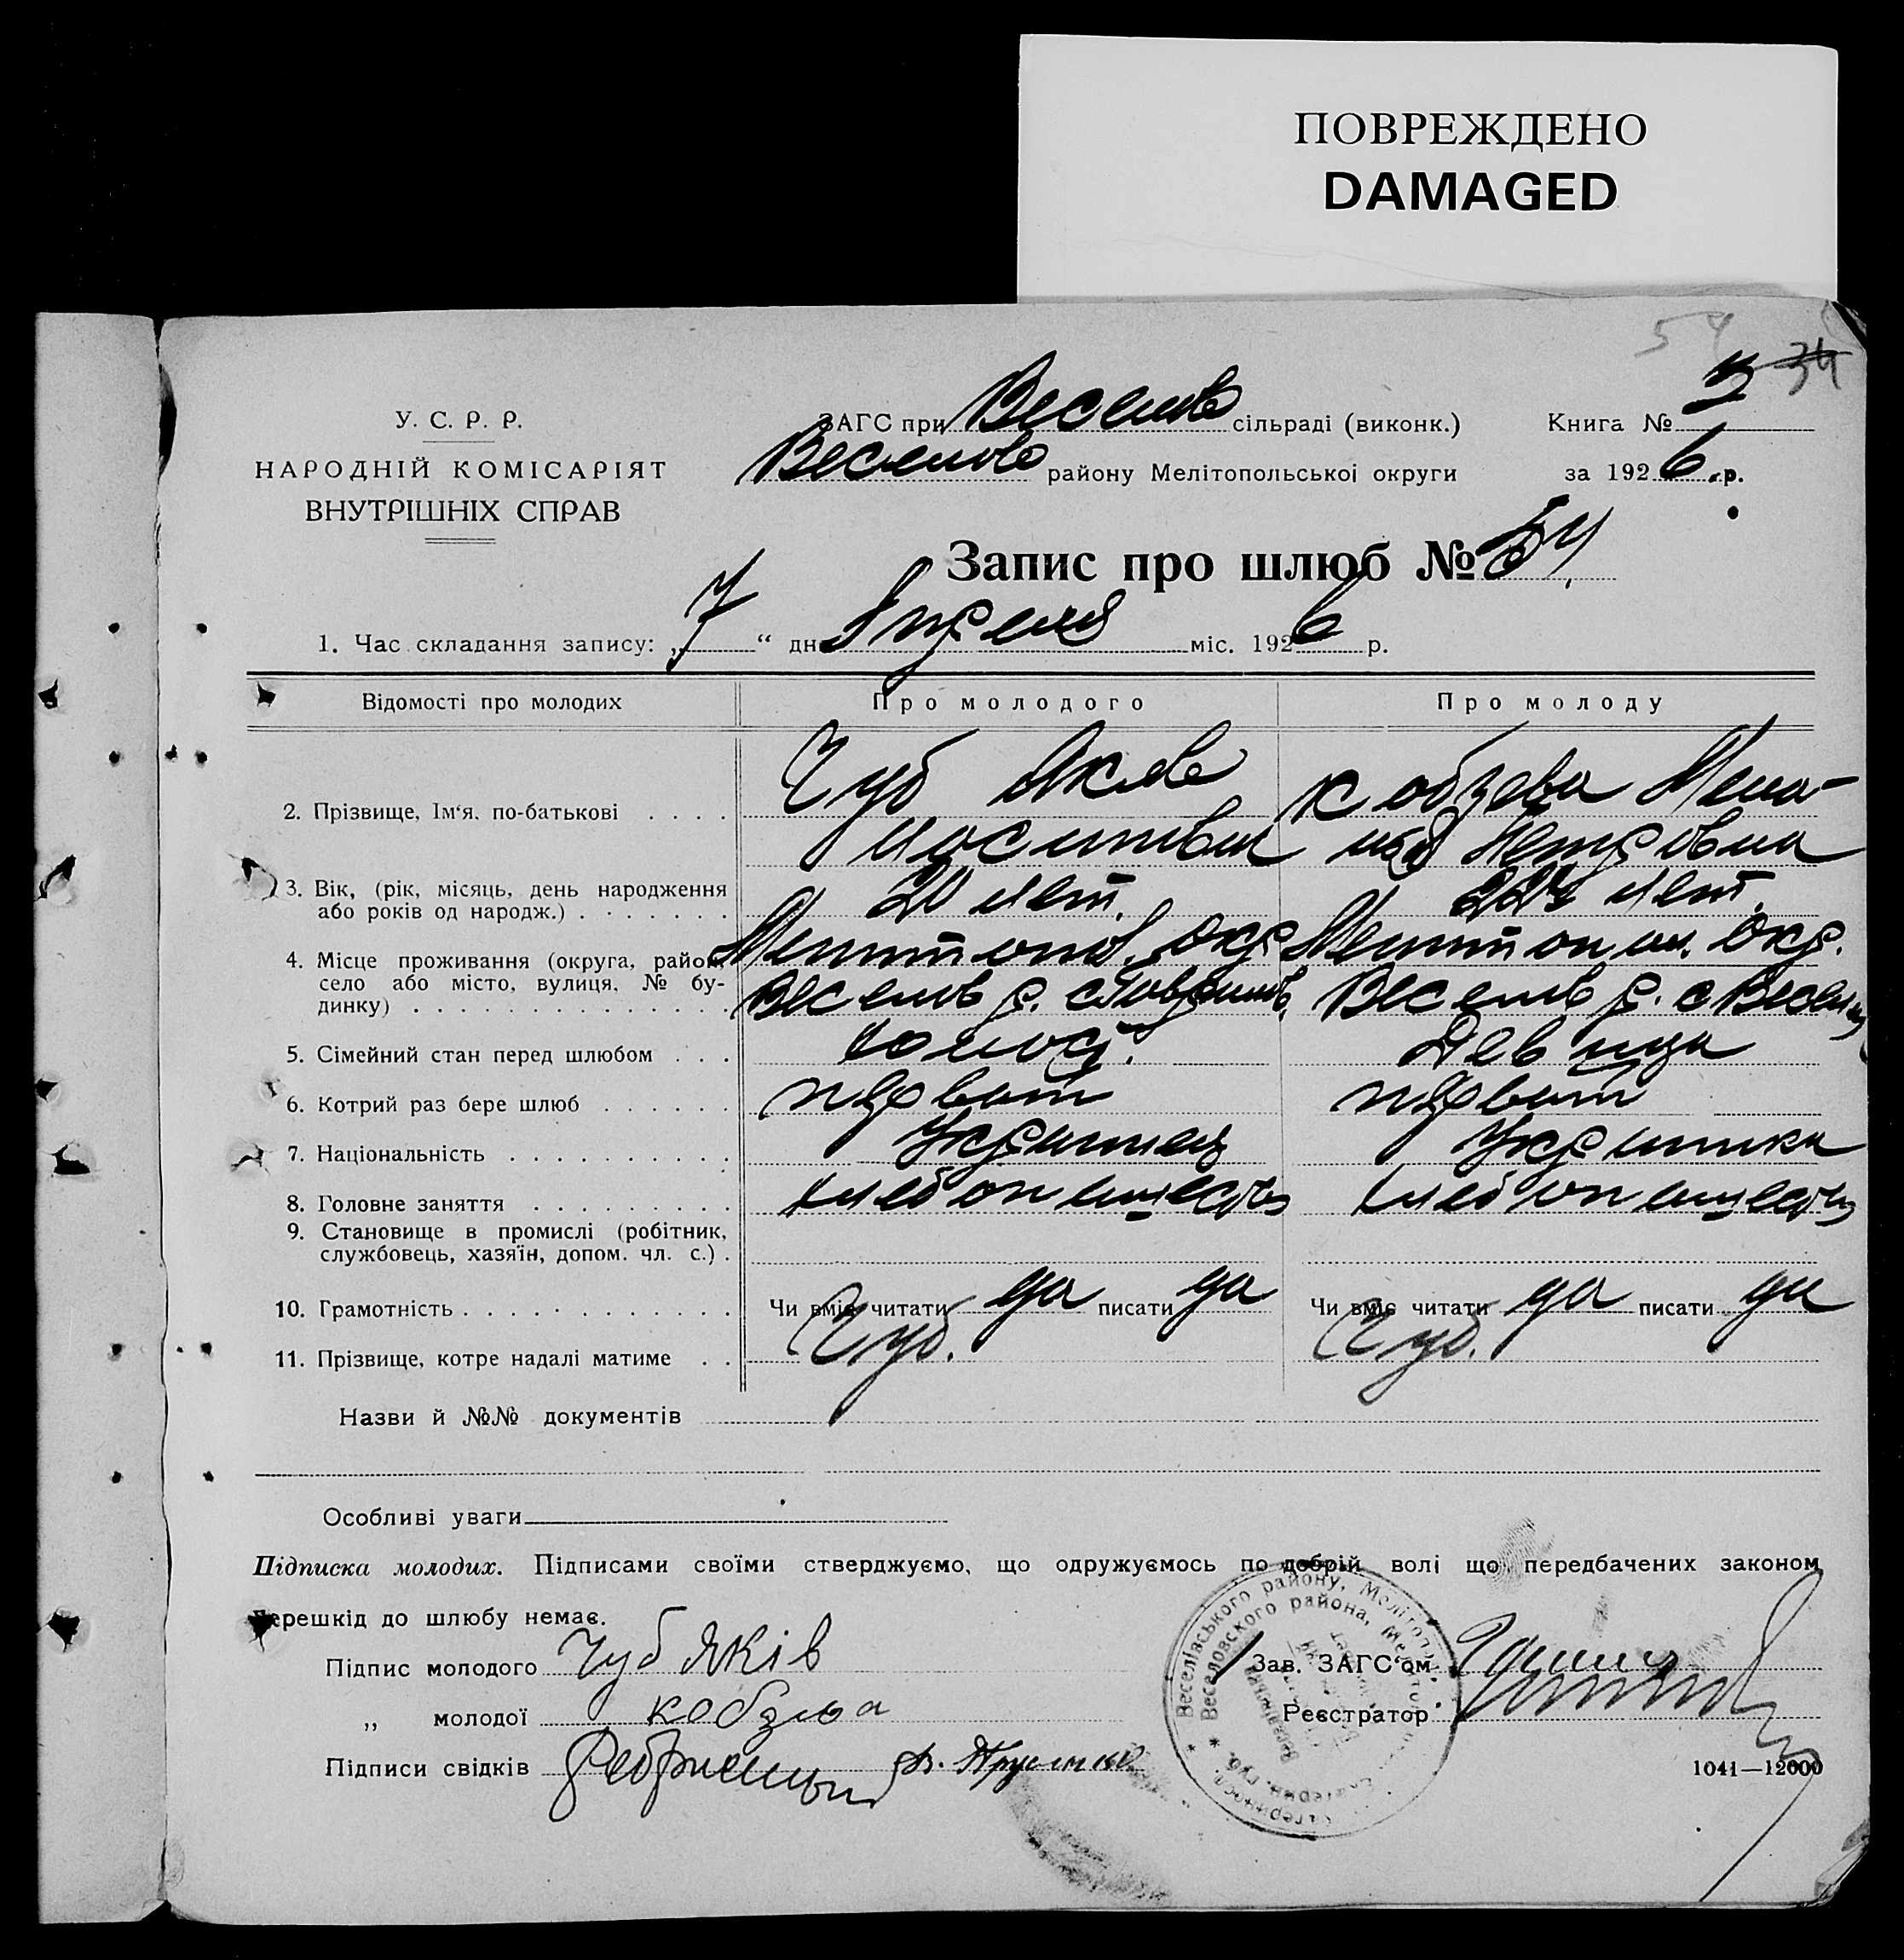 ПОВРЕЖДЕНО
DAMAGED
54
34
У. С. Р. Р.
НАРОДНІЙ КОМІСАРІЯТ
ВНУТРІШНІХ СПРАВ
ЗАГС при Веселов сільраді (виконк.) Книга №
Веселов району Мелітопольської округи за 1926 р.
Запис про шлюб № 54
1. Час складання запису: „7“ дн Апреля міс. 1926 р.
Відомості про молодих Про молодого Про молоду
2. Прізвище, Ім'я, по-батькові . . . . Чуб Яков Кобзева Мела-
ния Петровна
3. Вік, (рік, місяць, день народження
або років од народж.) . . . . . . . 20 лет. лет.
4. Місце проживання (округа, район, Мелитопол. окр Мелитопол. окр.
село або місто, вулиця, № бу- Веселов р. с Веселов р. с
динку) . . . . . . . . . . . . . . .
5. Сімейний стан перед шлюбом . . . холост. Девица
6. Котрий раз бере шлюб . . . . . . первый первый
7. Національність . . . . . . . . . . Украинец Украинка
8. Головне заняття . . . . . . . . . хлебопашество хлебопашество
9. Становище в промислі (робітник,
службовець, хазяїн, допом. чл. с.) .
10. Грамотність . . . . . . . . . . . . Чи вміє читати да писати да Чи вміє читати да писати да
11. Прізвище, котре надалі матиме . . Чуб. Чуб.
Назви й №№ документів
Особливі уваги
Підписка молодих. Підписами своїми стверджуємо, що одружуємось по добрій волі що передбачених законом
перешкід до шлюбу немає.
Підпис молодого Чуб Яків Зав. ЗАГС'ом
„ молодої Кобзева Реєстратор
Підписи свідків
1041—12000
Веселівського району, Меліто
Веселовского района, Мелитоп